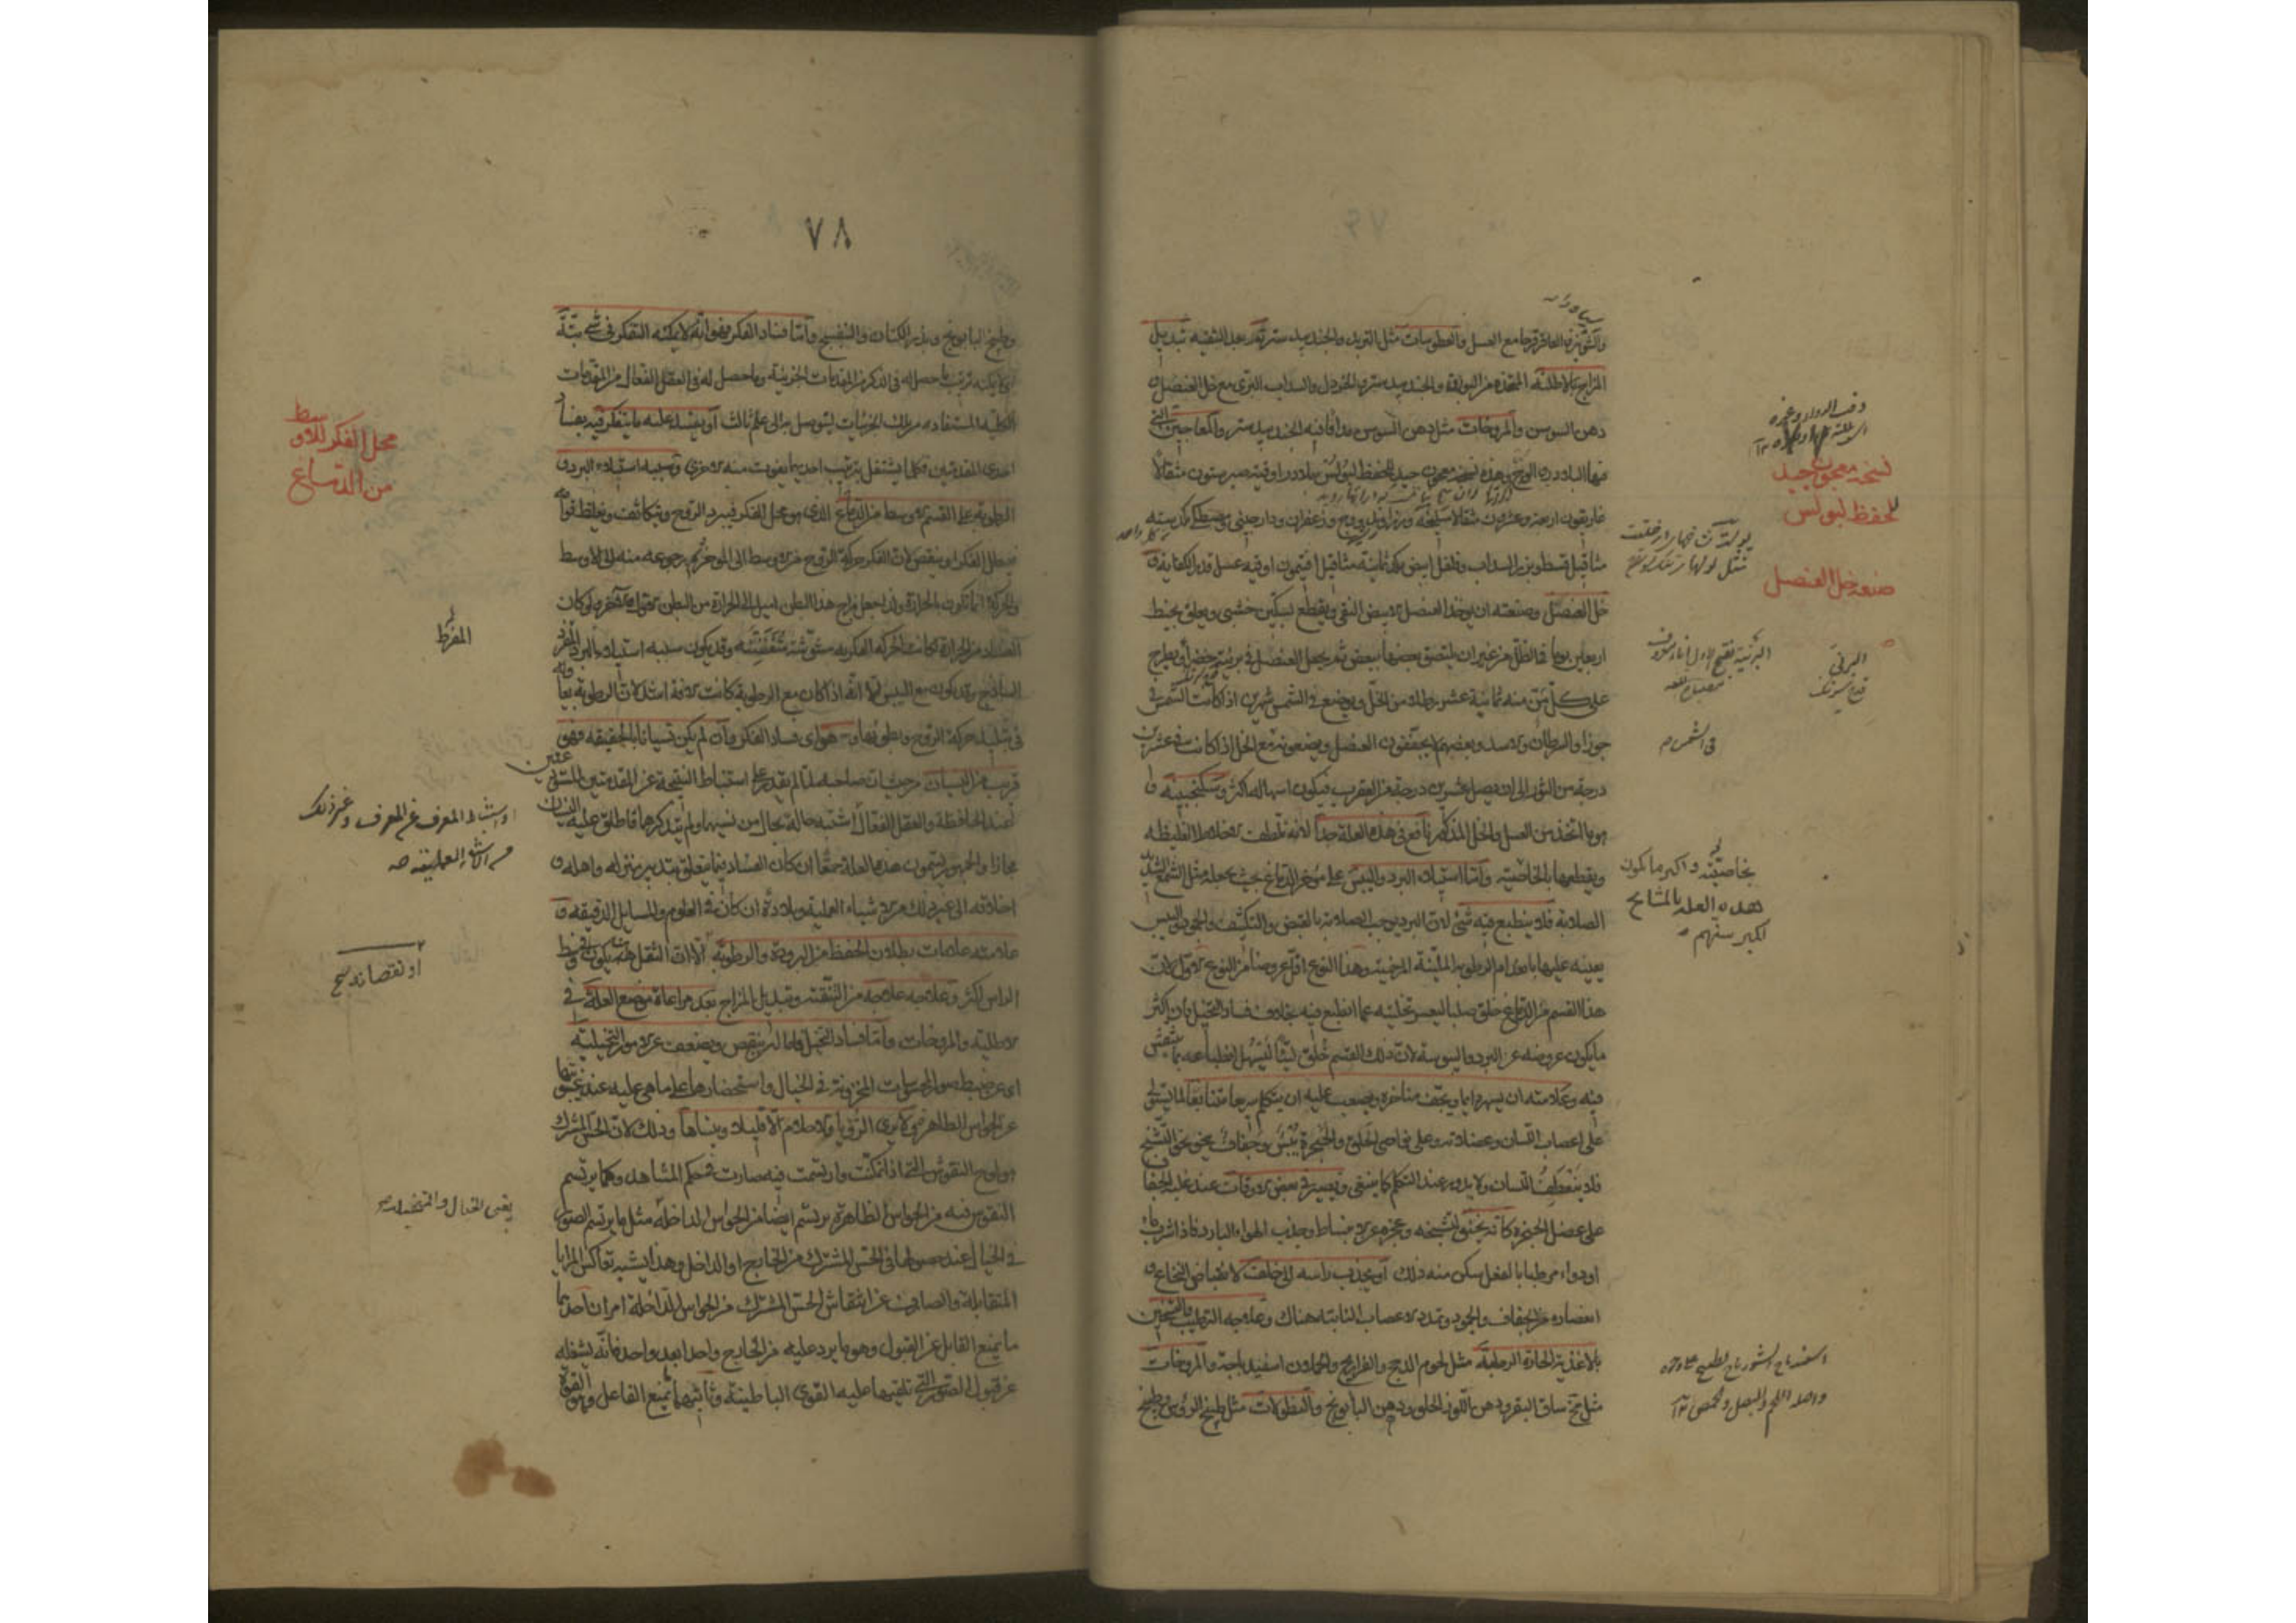 والشونيز والعاقرقرحا مع العسل والعطوسات مثل التربد والجندبيدستر ثم بعد التنقيه تبديل
المزاج بالاطليه المتخذه من البورق والجندبيدستر والخردل والسداب البرى مع خل العنصل
دهن السوسن والمروخات مثل دهن السوسن مدافا فيه الجندبيدستر والمعاجين التى
فيها البلادر والوج وهذه نسخه معجون جيد للحفظ لبولس بلادر اوقيه صبر ستون مثقالا
غاريقون اربعة وعشرون مثقالا سليخه وزراوند ووج وزعفران ودارچينى ومصطكى كل ستة
مثاقيل قسط وبزر السداب وفلفل ابيض كل ثمانية مثاقيل افتيمون اوقيه عسل قدر الكفاية
خل العنصل وصنعته ان يوخذ العنصل الابيض النقى ويقطع بسكين خشبى ويعلق بخيط
اربعين يوما فى الظل من غير ان يلتصق بعضها ببعض ثم يجعل العنصل فى برنيه خضرا ويطرح
على كل من منه ثمانية عشر رطلا من الخل ويوضع فى الشمس شهرين اذا كانت الشمس فى
جوزا والسرطان والاسد وبعضهم يجففون العنصل ويضعونه مع الخل اذا كانت فى عشرين
درجة من الثور الى ان يصل عشرين درجة من العقرب فيكون اسهاله اكثر وسكنجبينه
هو ما اتخذ من العسل والخل المذكور نافع فى هذه العلة جدا لانه تلطف الاخلاط الغليظه
ويقطعها بالخاصيه واما استيلاء البرد واليبس على موخر الدماغ بحيث يجعله مثل الشمع الشديد
الصلابة فلا ينطبع فيه شئ لان البرد يوجب الصلابة بالقبض والتكثيف والجمود واليبس
يعينه عليها باعدام الرطوبه الملينة المرخية وهذا النوع اقل عروضا من النوع الاول لان
هذا القسم من الدماغ خلق صلبا ليعسر تخليه عما انطبع فيه بخلاف فساد التخيل فان اكثر
مايكون عروضه عن البرد واليبوسة لان ذلك القسم خلق لينا ليسهل انطباعه بما ينتقش
فيه وعلامته ان يسهر دايما ويجف مناخره ويصعب عليه ان يتكلم سريعا متتابعا لما يستولى
على اعصاب اللسان وعضلاته وعلى نواحى الحلق والحنجرة يبس وجفاف يحس نحو التشنج
فلا ينعطف اللسان ولا يدور عند التكلم كما ينبغى ويصير فى بعض الاوقات عند غلبة الجفاف
على عضل الحنجرة كانه يختنق لتشنجه وعجزه عن الانبساط وجذب الهواء البارد فاذا شرب ماء
او دواء مرطبا بالفعل سكن منه ذلك او يجذب راسه الى خلف لانقباض النخاع
اعصابه من الجفاف والجمود وتمدد الاعصاب النابته هناك وعلاجه الترطيب والتسخين
بالاغذية الحارة الرطبة مثل لحوم الدجج والفراريج والحملان اسفيدباجة والمروخات
مثل مخ ساق البقر ودهن اللوز الحلو ودهن البابونج والنطولات مثل طبيخ الرؤس وطبيخ
نسخه معجون جيد
للحفظ لبولس
صنعة خل العنصل
البرنى
فى الشمس
بخاصيته واكثر ما يكون
هذه العله بالمشايخ
لكبر سنهم
٧٨
وطبيخ البابونج وبزر الكتان والبنفسج واما فساد الفكر فهو انه لا يمكنه التفكر فى شئ بتة
ولا يمكنه ترتيب ما حصل له فى الذكر من المقدمات الجزيية وما حصل له فى العقل الفعال من المقدمات
الكليه المستفاده من تلك الجزئيات ليتوصل بها الى علم ثالث او يفسد عليه ما يتفكر فيه بفساد
احدى المقدمتين فكلما يشتغل بترتيب احديهما يفوت منه الاخرى وسببه استيلاء البرد و
الرطوبة على القسم الاوسط من الدماغ الذى هو محل الفكر فيبرد الروح ويتكاثف ويغلظ قوامه
فيبطل الفكر او ينقص لان الفكر حركة الروح من الاوسط الى الموخر ثم رجوعه منه الى الاوسط
والحركة انما تكون بالحرارة ولذا جعل مزاج هذا البطن اميل الى الحرارة من البطن الاول والاخر ولو كان
الفساد من الحرارة لكانت الحركه الفكريه مشوشة متفننة وقد يكون سببه استيلاء البرد المفرد
الساذج وقد يكون مع اليبس الا انه اذا كان مع الرطوبة كانت الافة اشد لان الرطوبة بها
فى تبليد حركة الروح وبطوئها وهو اى فساد الفكر وان لم يكن نسيانا بالحقيقه فهو
قريب من النسيان من حيث ان صاحبه لما لم يقدر على استنباط النتيجة عن المقدمتين المستوليتين
عند الحافظة والعقل الفعال اشتبه حاله بحال من نسيها ولم يتذكرها فاطلق عليه النسيان
مجازا والجمهور يسمون هذه العلة حمقا ان كان الفساد فيما يتعلق بتدبير منزله واهله و
اخلاقه الى غير ذلك من الاشياء العملية وبلادة ان كان فى العلوم والمسايل الدقيقه و
علامته علامات بطلان الحفظ من البرودة والرطوبة الا ان الثقل ههنا يكون فى وسط
الراس اكثر وعلاجه علاجه من التنقية وتبديل المزاج بعد مراعاة موضع العلة فى
الاطلية والمروخات واما فساد التخيل فاما ان ينقص ويضعف عن الامور التخيلية
اى عن ضبط صور المحسوسات المخزونة فى الخيال واستحضارها على ماهى عليه عند غيبتها
عن الحواس الظاهرة حتى لا يرى الرؤيا والاحلام الا قليلا وينساها وذلك لان الحس المشترك
هو لوح النقوش التى اذا تمكنت وارتسمت فيه صارت فى حكم المشاهد وكما يرتسم
النقوش فيه من الحواس الظاهرة يرتسم ايضا من الحواس الداخله مثل ما يرتسم الصور
فى الخيال عند حصولها فى الحس المشترك من الخارج او الداخل وهذا يشبه تعاكس المرايا
المتقابلة والصارف عن انتقاش الحس المشترك من الحواس الداخلة امران احدهما
ما يمنع القابل عن القبول وهو ما يرد عليه من الخارج واحدا بعد واحد فانه يشغله
عن قبول الصور التى تلقيها عليه القوى الباطنية وثانيهما يمنع الفاعل وهو القوة
محل الفكر للاوسط
من الدماغ
المفرط
او استنباط المعرف عن المعرف وغير ذلك
او نقصانه
يعنى الخيال والمتخيله